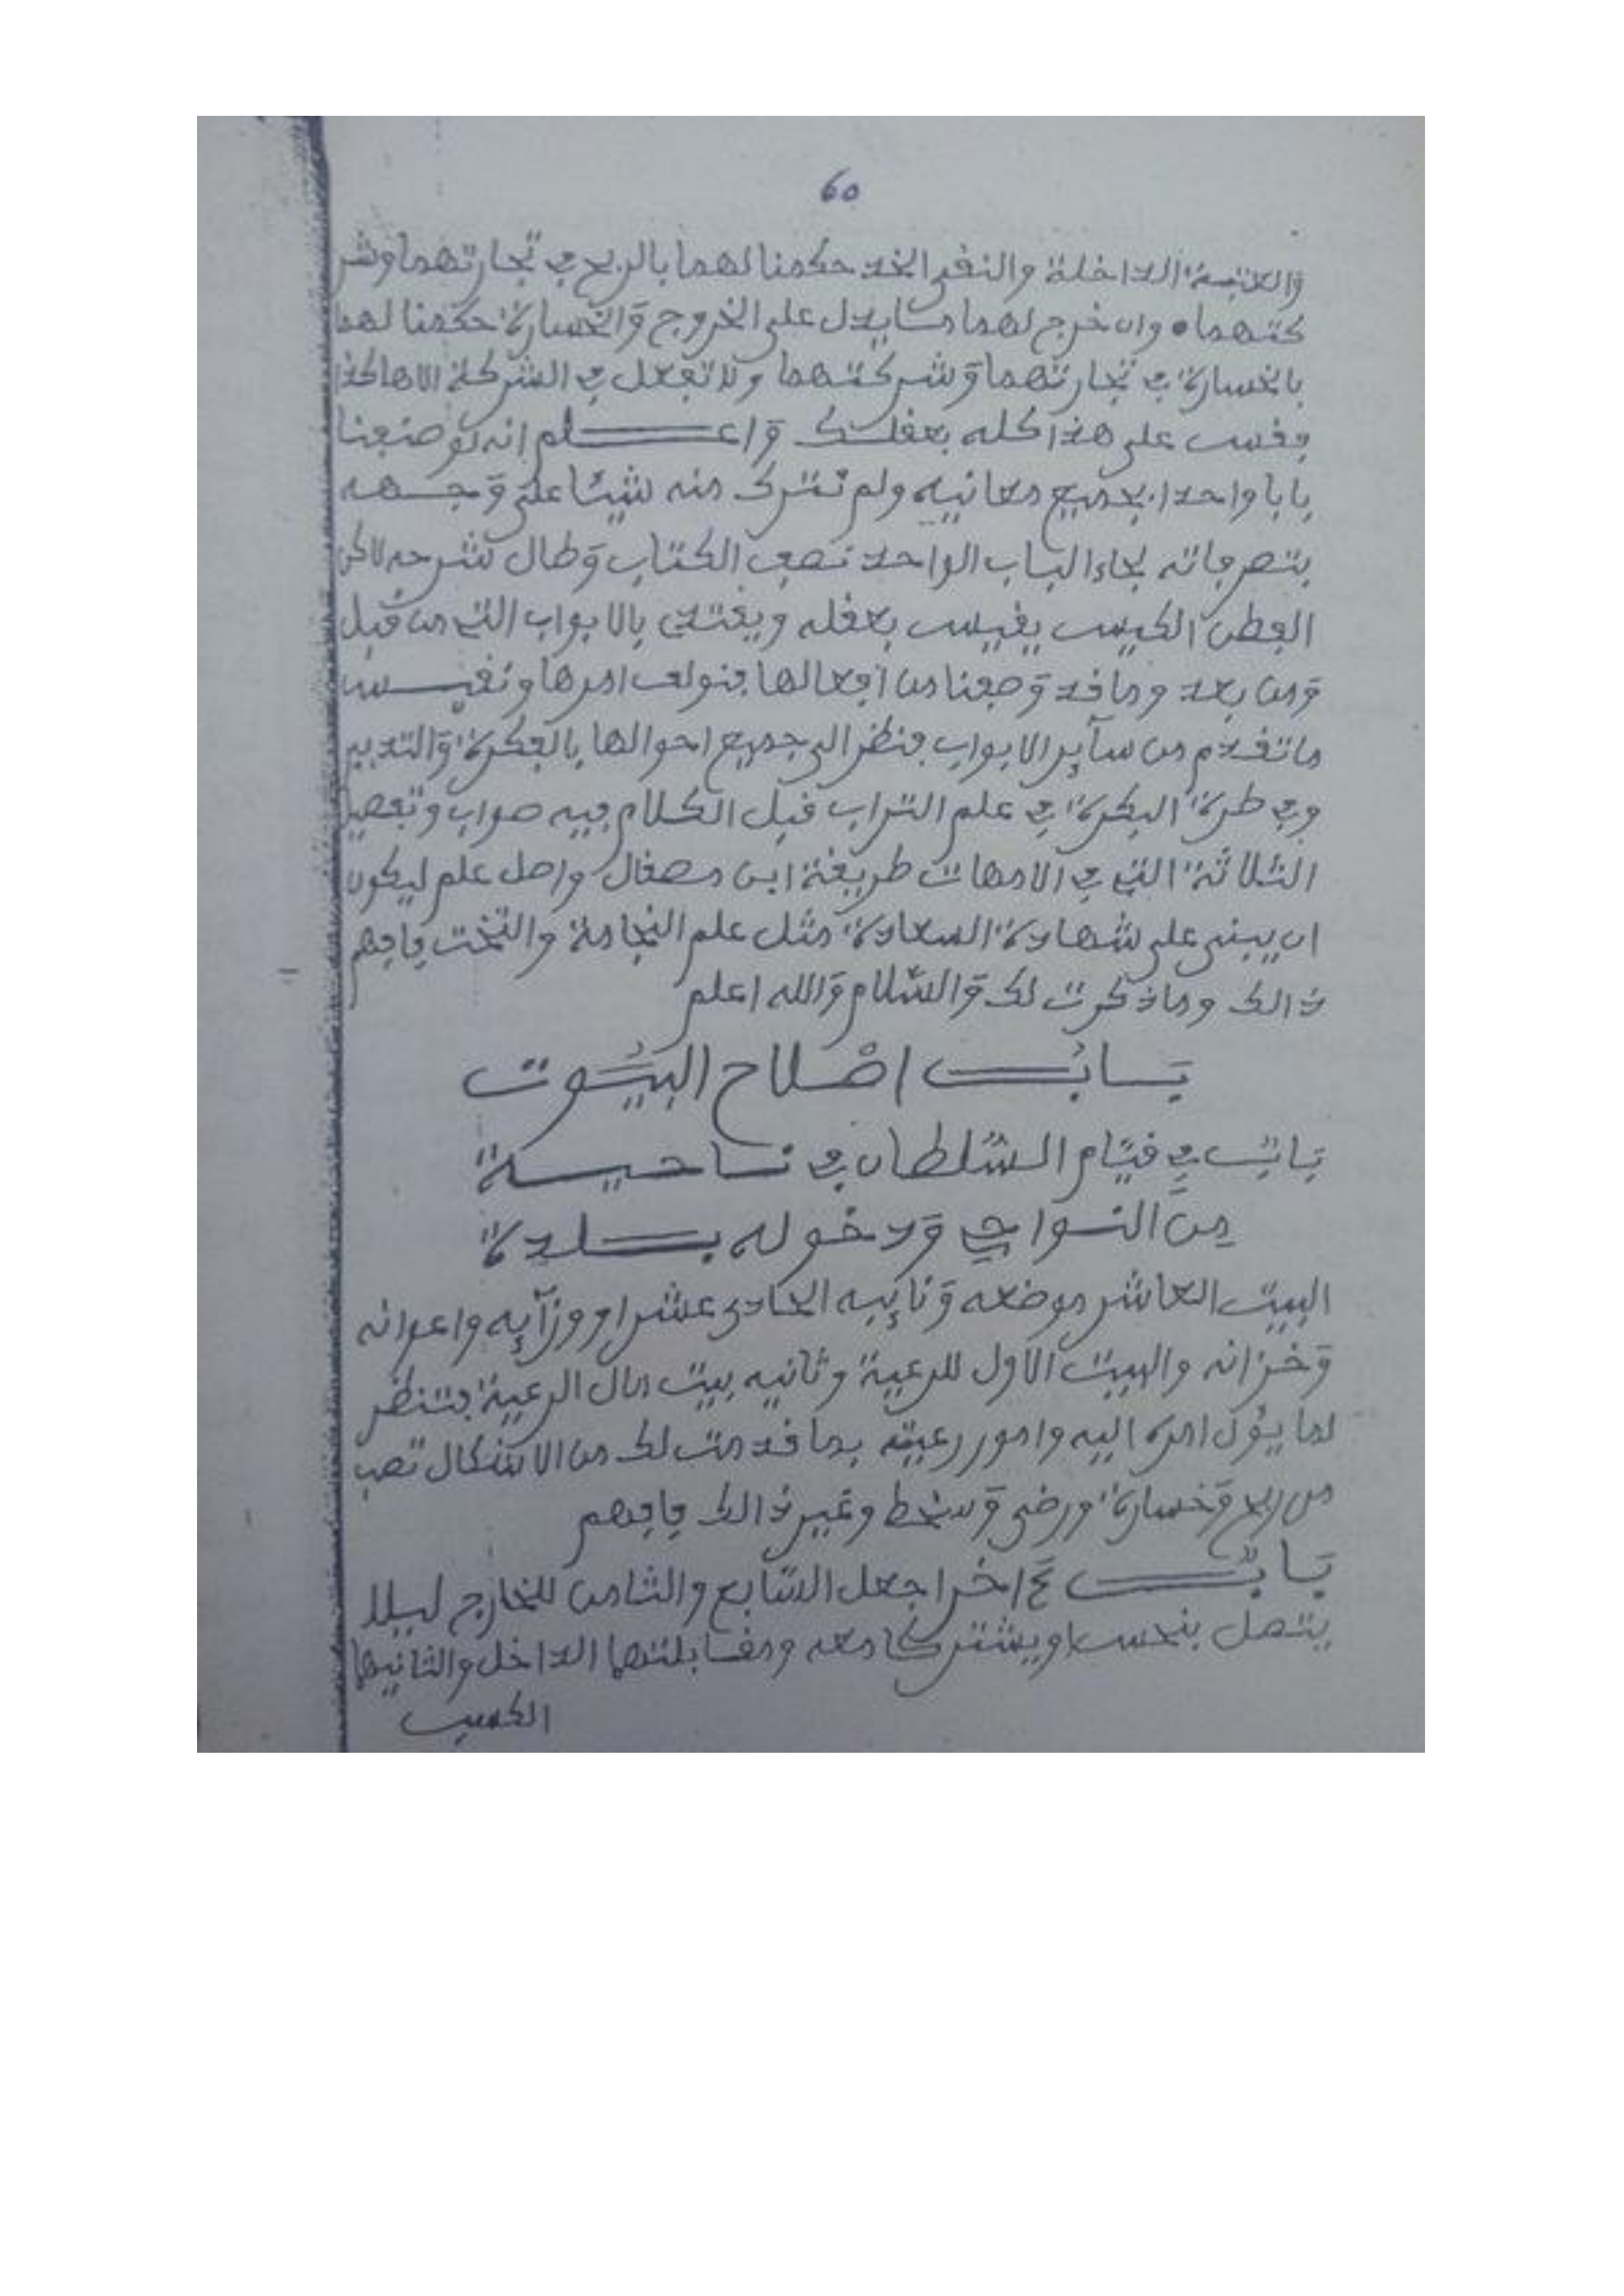 60
والعتبة الداخلة والنفي الخد حكمنا لهما بالربح في تجارتهما وشر
كتهما • وان خرج لهما مما يدل على الخروج والخسارة حكمنا لهما
بالخسارة في تجارتهما وشركتهما ولا تفعل في الشركة الا هاكذا
فقس على هذا كله بعقلك واعلم انه لو ضعنا
بابا واحدا بجميع معانيه ولم نترك منه شيئا على وجهه
بتصرفاته لجاء الباب الواحد نصف الكتاب وطال شرحه لاكن
الفطن الكيس يقيس بعقله ويقتدي بالابواب التي من قبل
ومن بعد وما قد وضعنا من افعالها فنولف امرها ونقيس
ما تقدم من سآير الابواب فنظر الى جميع احوالها بالفكرة والتدبير
وفي طرة الفكرة في علم التراب قبل الكلام فيه صواب وتفصيل
الثلاثة التي في الامهات طريقة ابن مصقال واصل علم ليكون
ان يبنى على شهادة السعادة مثل علم النجامة والتخت فافهم
ذالك وما ذكرت لك والسلام والله اعلم
باب اصلاح البيوت
باب في قيام السلطان في ناحية
من النواحي ودخوله بلدة
البيت العاشر موضعه وثانيه الحادى عشر امر وزآيه واعوانه
وخزانه والبيت الاول للرعية وثانيه بيت مال الرعية فتنظر
لما يؤل امره اليه وامور رعيته بما قدمت لك من الاشكال تصب
من ربح وخسارة ورضى وسخط وغير ذالك فافهم
باب ع اخر اجعل السابع والثامن للخارج ليلا
يتصل بنحس او يشترك معه ومقابلتهما الداخل والثانيها
الكسب